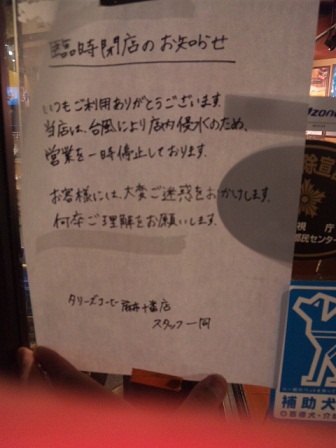 臨時閉店のお知らせ
いつもご利用ありがとうございます。
当店は、台風により店内侵水のため、
営業を一時停止しております。
お客様には、大変ご迷惑をおかけします。
何卒ご理解をお願いします。
タリーズコーヒー 麻布十番店
スタッフ一同
補助犬